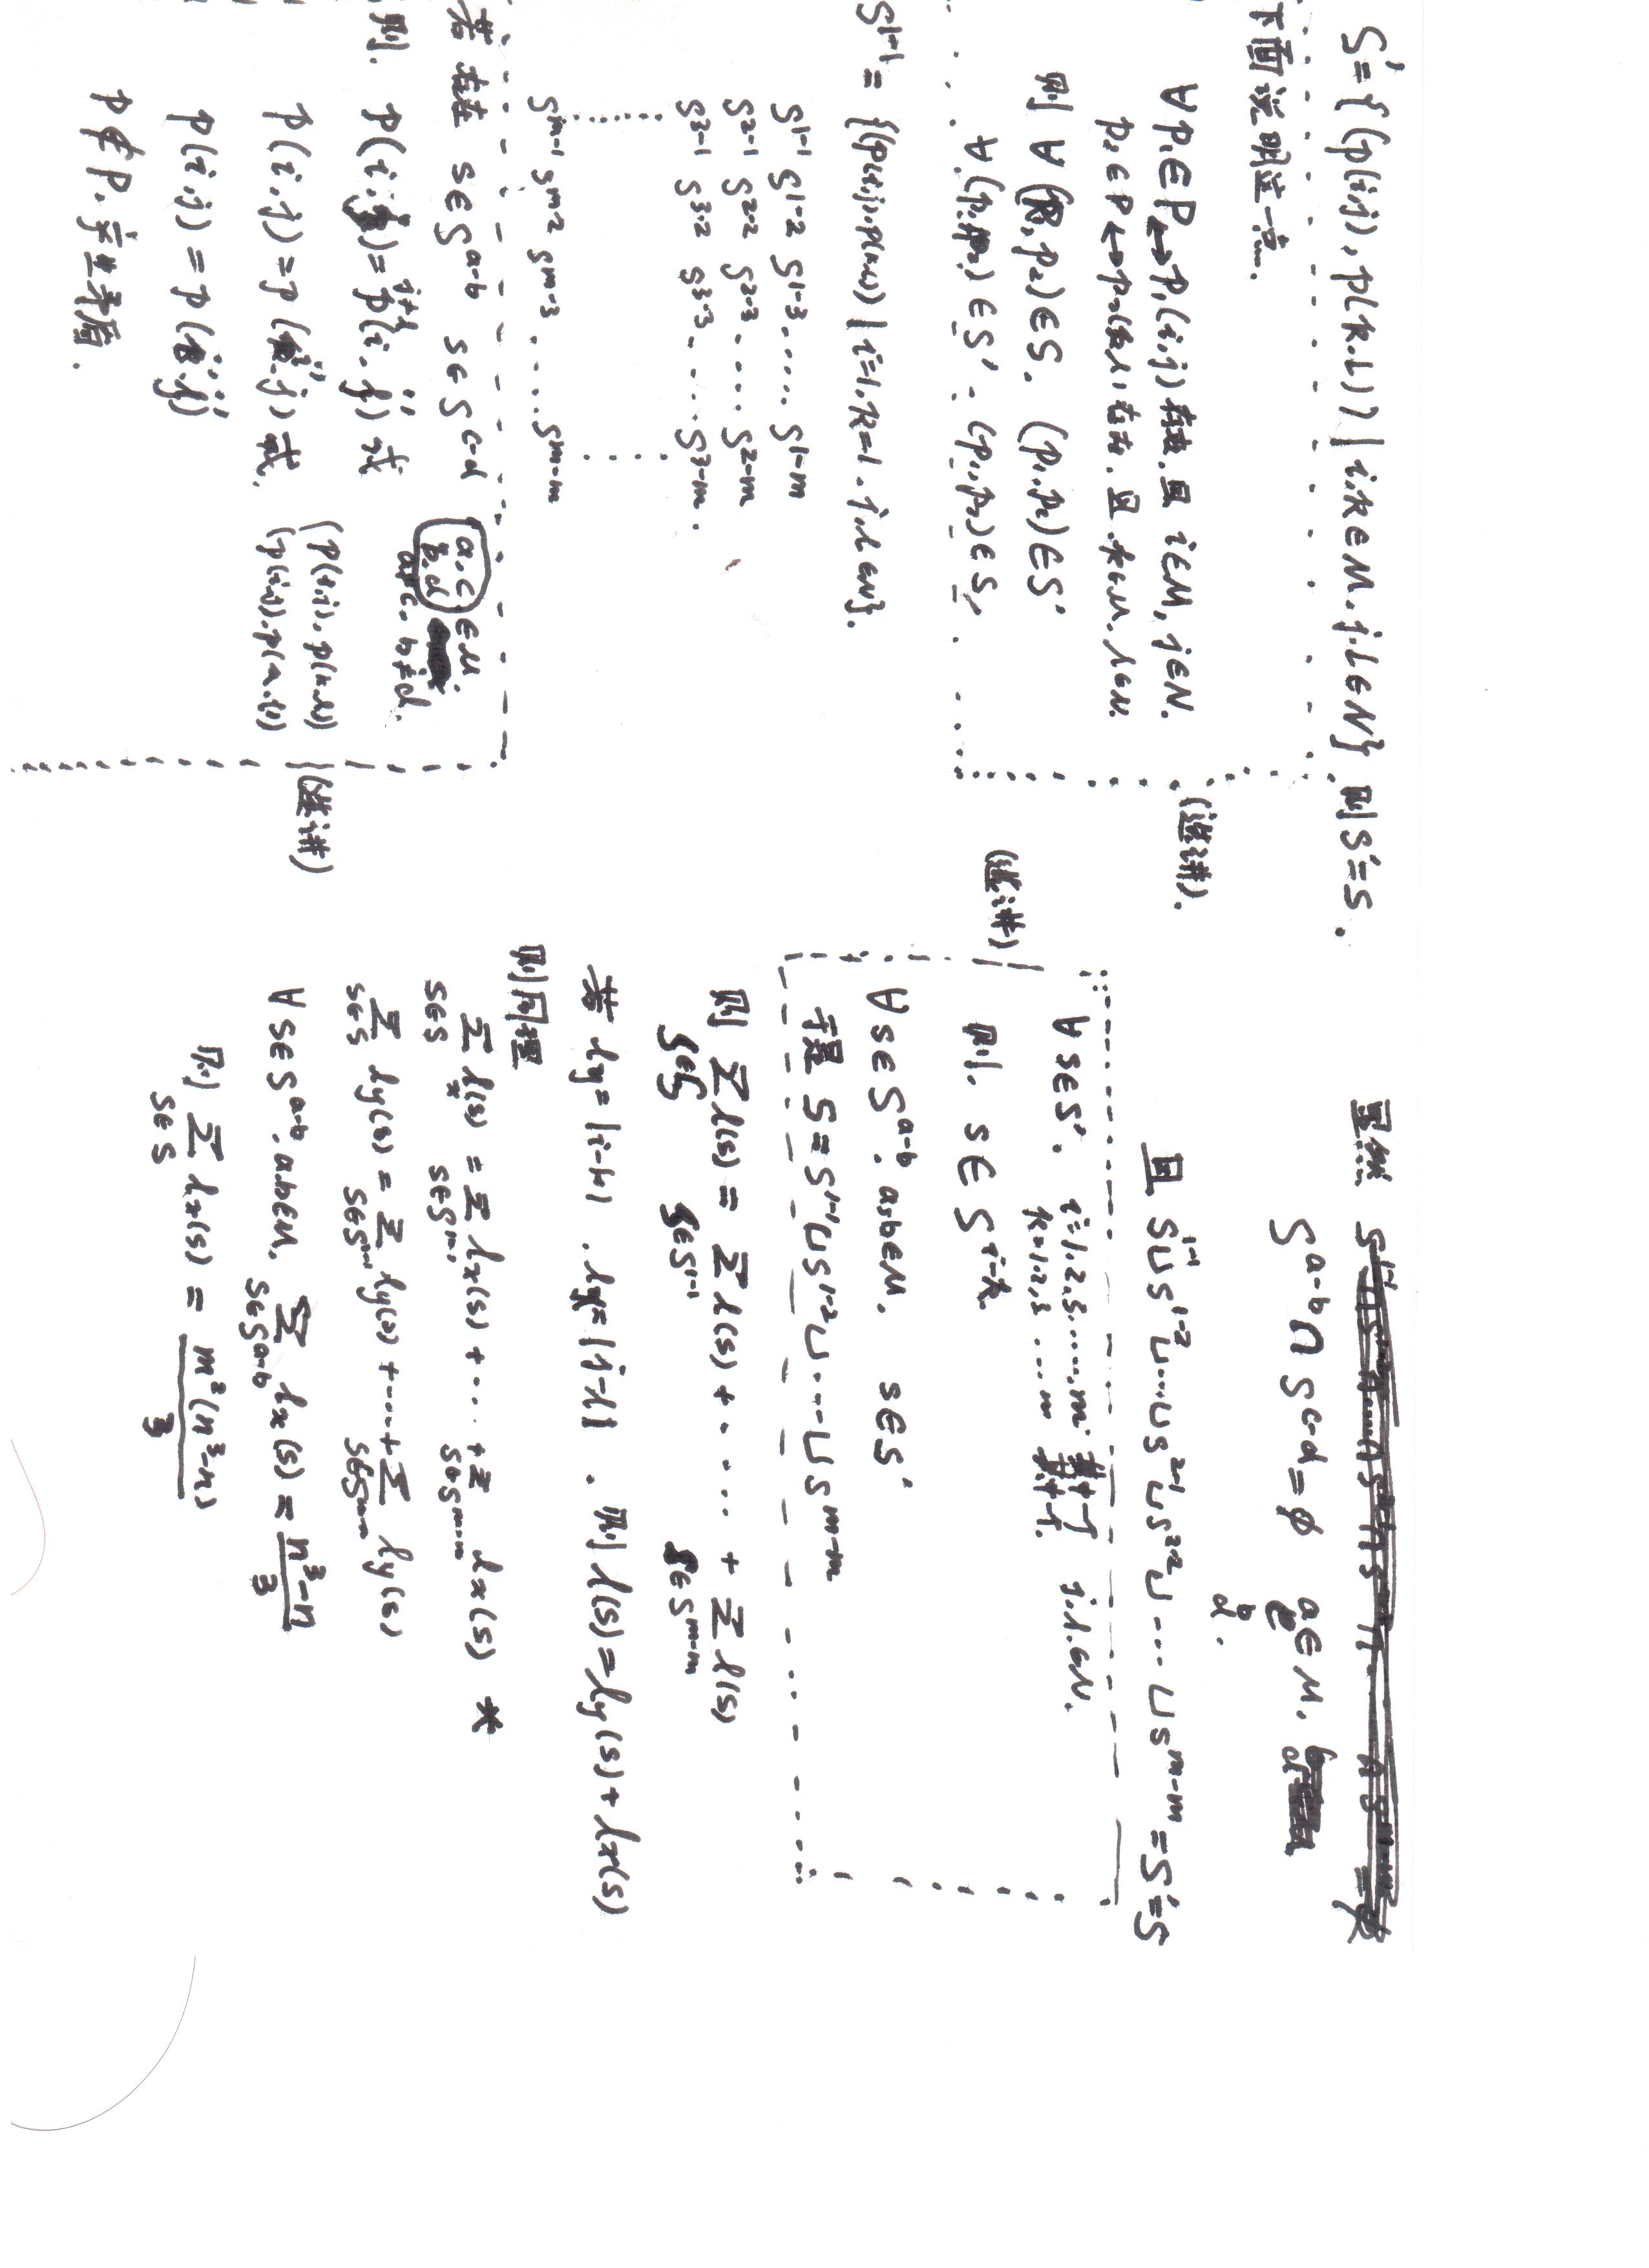 S'={(p(i,j),p(k.l))|i.k∈M.j.l∈N} 则S'=S.
下面说明这一点.
∀p₁∈P↔p₁(i,j)存在.且 i∈M, j∈N.
p₂∈P↔p₂(k.l)存在.且.k∈M.l∈N.
(选讲).
则 ∀(p₁,p₂)∈S. (p₁.p₂)∈S'
∀(p₁,p₂)∈S'. (p₁,p₂)∈S.
S¹⁻¹= {(p(i,j).p(k,l))|i=1.k=1.j.l∈N}.
S¹⁻¹ S¹⁻² S¹⁻³..... S¹⁻ᵐ
S²⁻¹ S²⁻² S²⁻³..... S²⁻ᵐ
S³⁻¹ S³⁻² S³⁻³..... S³⁻ᵐ.
Sᵐ⁻¹ Sᵐ⁻² Sᵐ⁻³..... Sᵐ⁻ᵐ
若存在 s∈S^{a-b} s∈S^{c-d} a.c b.d ∈M.
a≠c. b≠d.
则. p(i,j)=p(i.j') 或
j≠l
p(i,j)=p(i'.j)或.
(p(i,j).p(k.l))
(p(i,j).p(a.l))
(选讲)
p(i,j)=p(i'.j')
p∉P.产生矛盾.
显然
S^{a-b}∩S^{c-d}=φ a c ∈M. b d
b
d.
且 S¹⁻¹∪S¹⁻²∪...∪S²⁻¹∪S²⁻²∪....∪Sᵐ⁻ᵐ=S'=S
∀s∈S'. i=1.2.3.....,m. 其中一个 j.l.∈N.
k=1.2,3 ....m 其中一个.
(选讲)
则. s∈S^{i-k}.
∀s∈S^{a-b}. a,b∈M. s∈S'
于是 S=S¹⁻¹∪S¹⁻²∪....∪Sᵐ⁻ᵐ
则 Σ_{s∈S} l(s) = Σ_{s∈S¹⁻¹} l(s)+.....+Σ_{s∈Sᵐ⁻ᵐ} l(s)
若 ly=|i-k| .lx=|j-l| .则 l(s)=ly(s)+lx(s)
则同理
Σ_{s∈S} lx(s) = Σ_{s∈S¹⁻¹} lx(s)+...+Σ_{s∈Sᵐ⁻ᵐ} lx(s) *
Σ_{s∈S} ly(s) = Σ_{s∈S¹⁻¹} ly(s)+....+Σ_{s∈Sᵐ⁻ᵐ} ly(s)
∀s∈S^{a-b}. a.b∈M. Σ_{s∈S^{a-b}} lx(s) = (n³-n)/3
则 Σ_{s∈S} lx(s) = m²(n³-n)/3